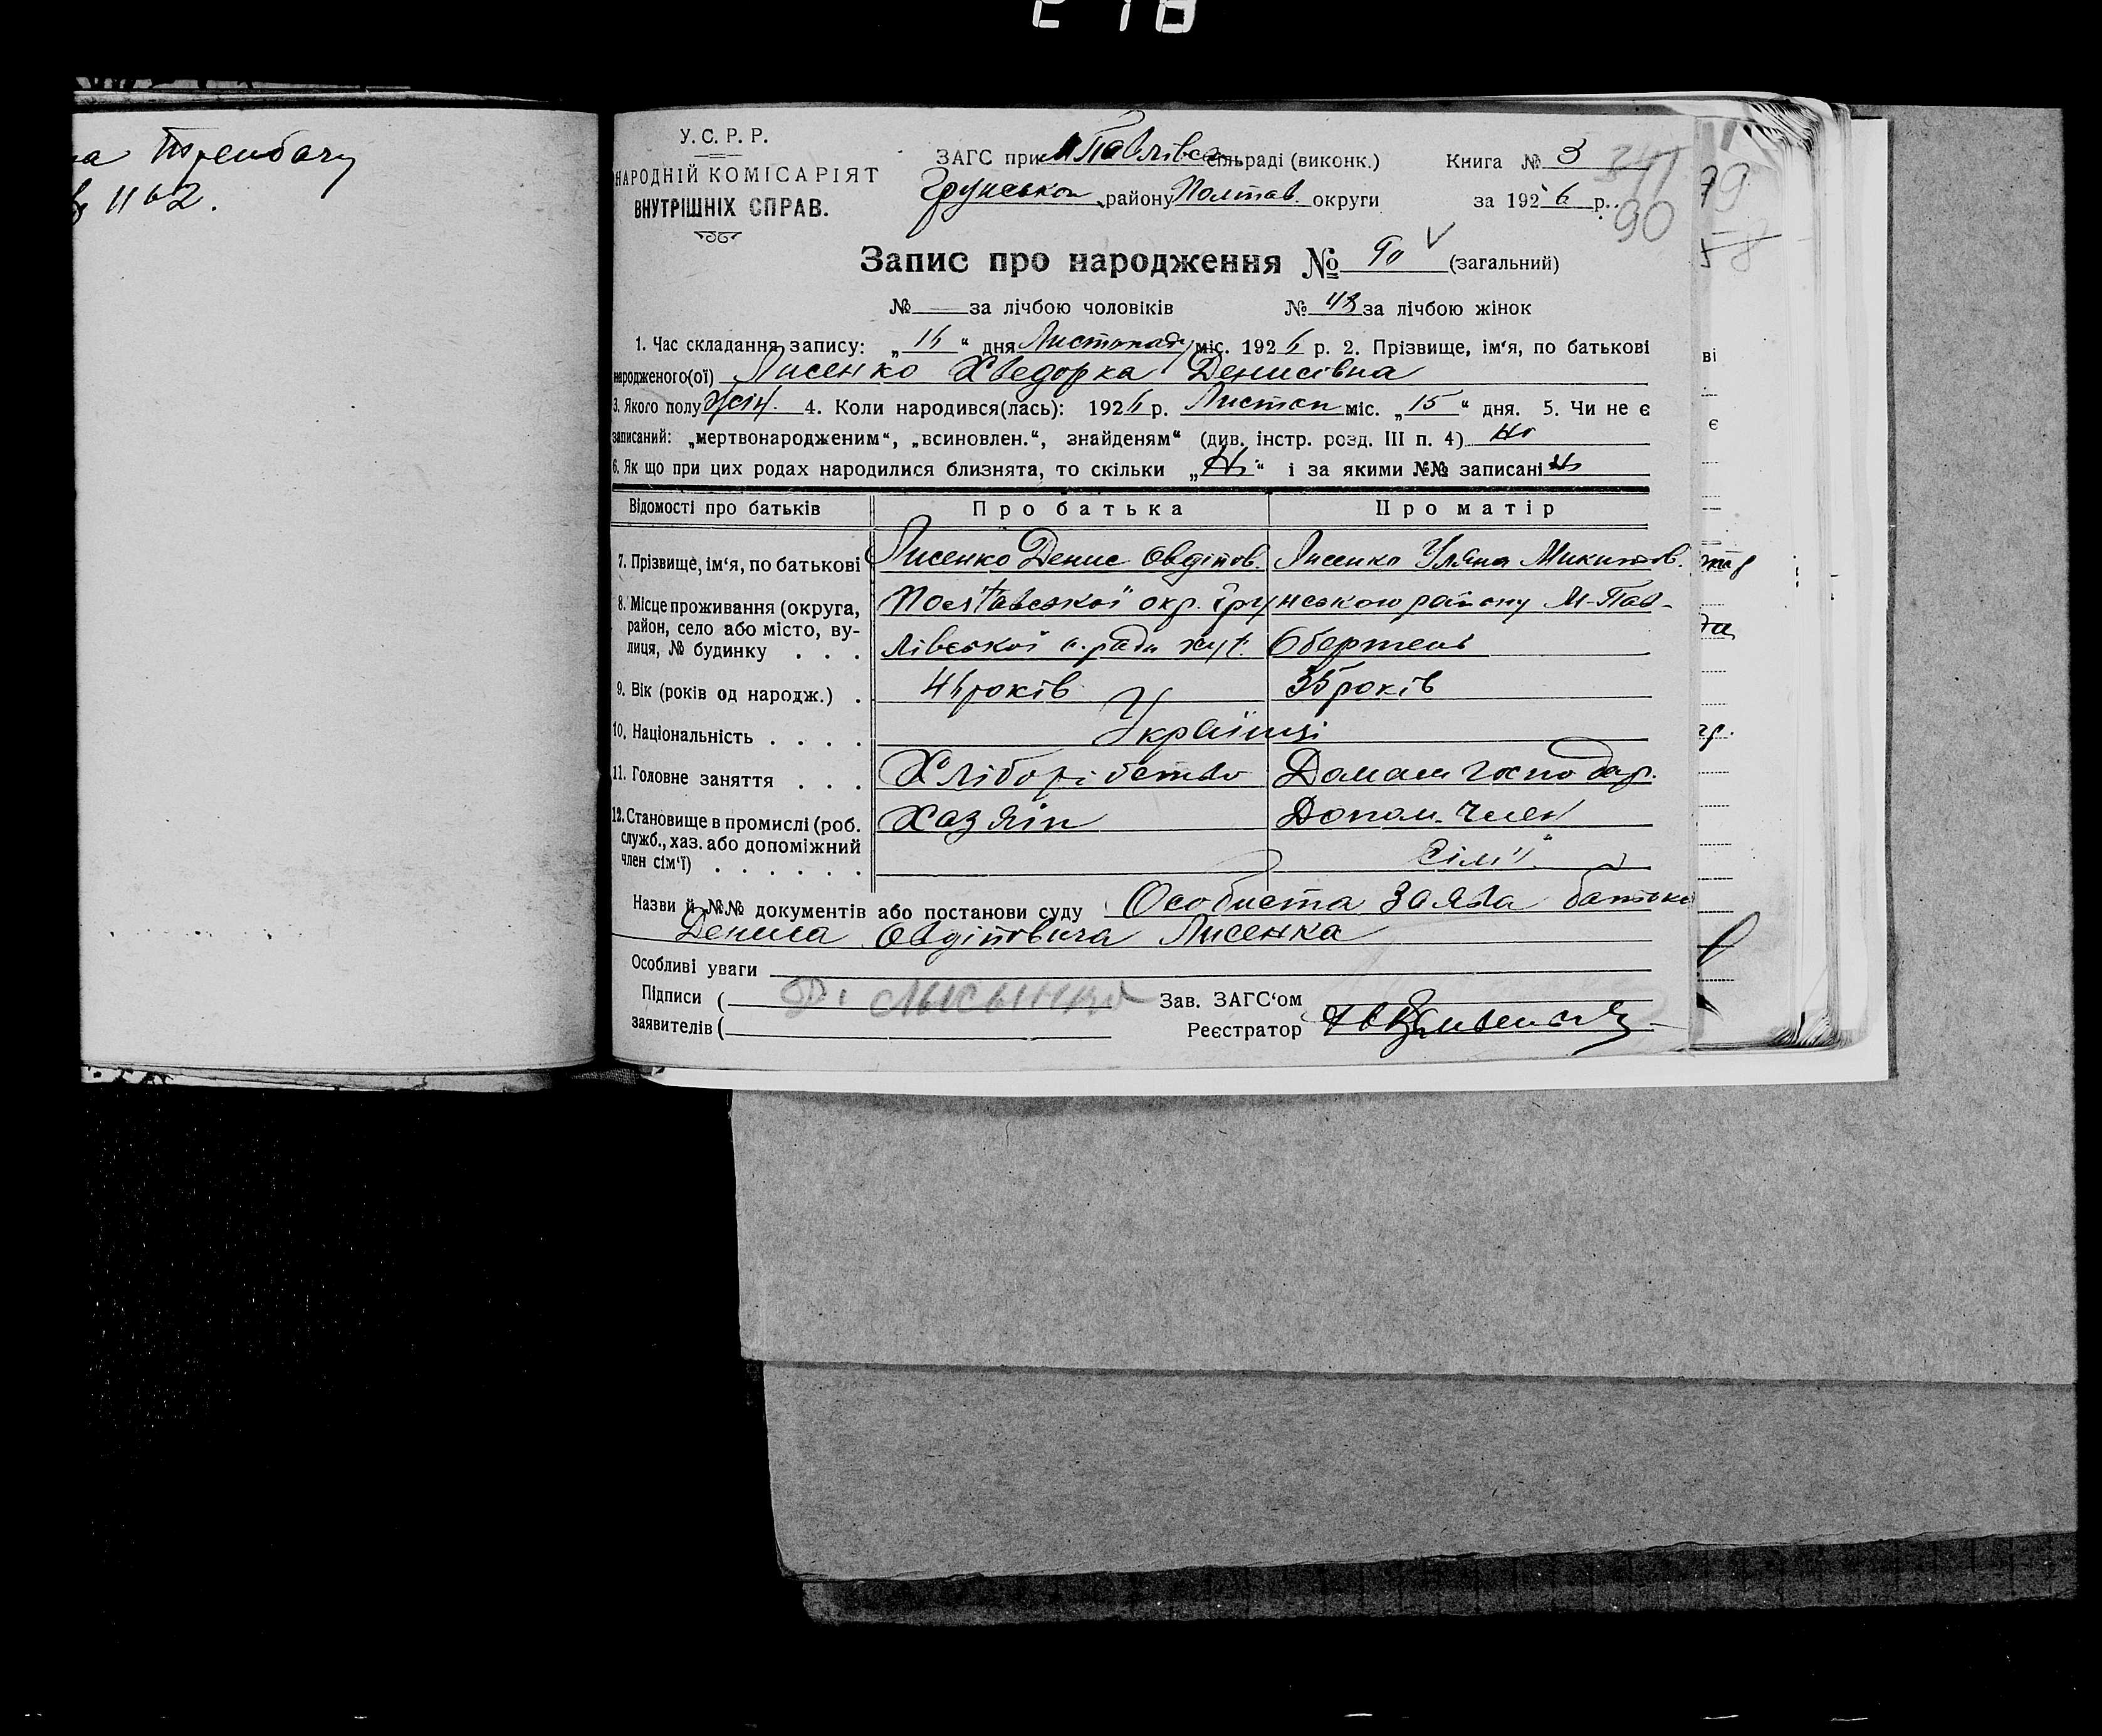 1162.
У. С. Р. Р.
НАРОДНІЙ КОМІСАРІЯТ
ВНУТРІШНІХ СПРАВ.
ЗАГС при М Павлівськ сільраді (виконк.) Книга № 3
Грунськом району Полтав. округи за 1926 р.
90
Запис про народження № 90 (загальний)
№ — за лічбою чоловіків № 43 за лічбою жінок
1. Час складання запису: „16“ дня Листопаду міс. 1926 р. 2. Прізвище, ім‘я, по батькові
народженого(ої) Лисенко Хведорка Денисовна
3. Якого полу жін. 4. Коли народився(лась): 1926 р. Листоп міс. „15“ дня. 5. Чи не є
записаний: „мертвонародженим“, „всиновлен.“, знайденям“ (див. інстр. розд. III п. 4) Ні
6. Як що при цих родах народилися близнята, то скільки „Ні“ і за якими №№ записані Ні
Відомості про батьків Про батька Про матір
7. Прізвище, ім‘я, по батькові Лисенко Денис Овдіпов. Лисенко Уляна Микитов.
8. Місце проживання (округа, район, село або місто, вулиця, № будинку . . . Полтавської окр. Грунського району М-Пав-
лівської с. ради хут. Обертень
9. Вік (років од народж.) . 46 років 35 років
10. Національність . . . . Українці
11. Головне заняття . . . Хліборобство Домашн господар.
12. Становище в промислі (роб. служб., хаз. або допоміжний член сім‘ї) . . . . . . Хазяїн Допом. член
сім'ї
Назви й №№ документів або постанови суду Особиста заява батька
Дениса Овдіповича Лисенка
Особливі уваги
Підписи ( Д. Лысынко Зав. ЗАГС‘ом
заявителів ( Реєстратор